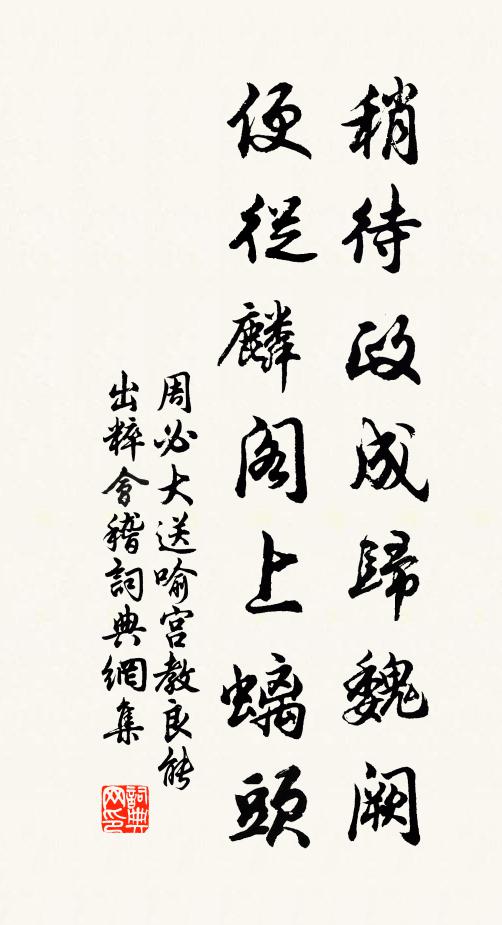 稍待政成歸魏闕
便從麟閣上螭頭
周必大送喻宮教良能
出粹會稽詞典網集
詞典网印